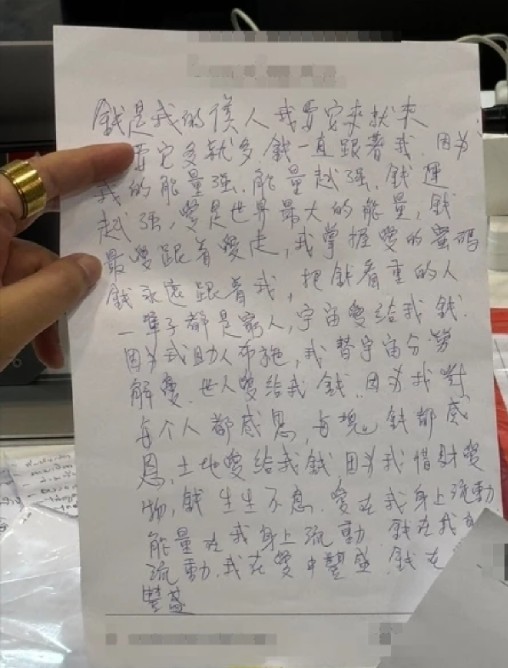 錢是我的僕人 我要它來就來
要它多就多 錢一直跟著我. 因为
我的能量强. 能量越强. 錢運
越强, 愛是世界最大的能量, 錢
最愛跟着愛走, 我掌握愛的密碼
錢永遠跟着我, 把錢看重的人
一輩子都是窮人, 宇宙愛给我錢.
因为我助人布施, 我替宇宙分勞
解憂. 世人愛给我錢. 因为我對
每个人都感恩, 每塊錢都感
恩, 土地愛给我錢 因为我惜財愛
物, 錢生生不息. 愛在我身上流動
能量在我身上流動. 錢在我
流動. 我在愛中豐盛. 錢在
豐盛